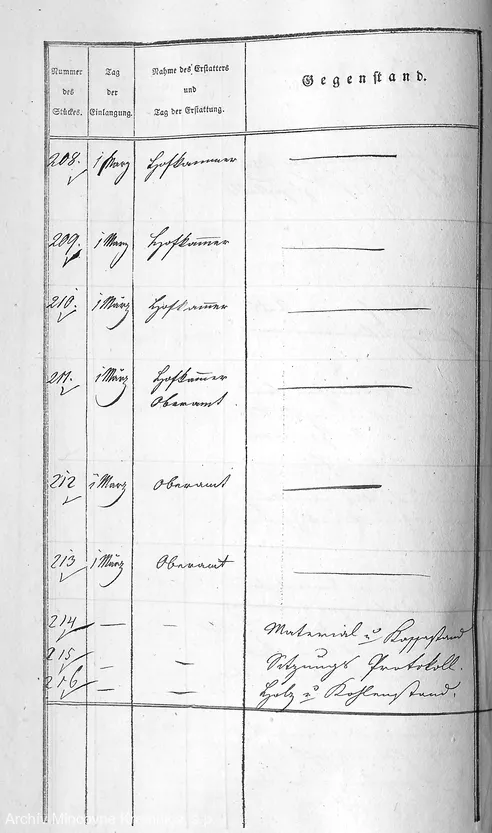 Nummer
des
Stückes.
Tag
der
Einlangung.
Nahme des Erstatters
und
Tag der Erstattung.
Gegenstand.
208. 1 März Hofkammer
209. 1 März Hofkam̅er
210. 1 März Hofkam̅er
211. 1 März Hofkam̅er
Oberamt
212 1 März Oberamt
213 1 März Oberamt
214 — — Material u
215 — — Sitzungs Protokoll.
216 — — Holz u Kohlenstand.
Archiv